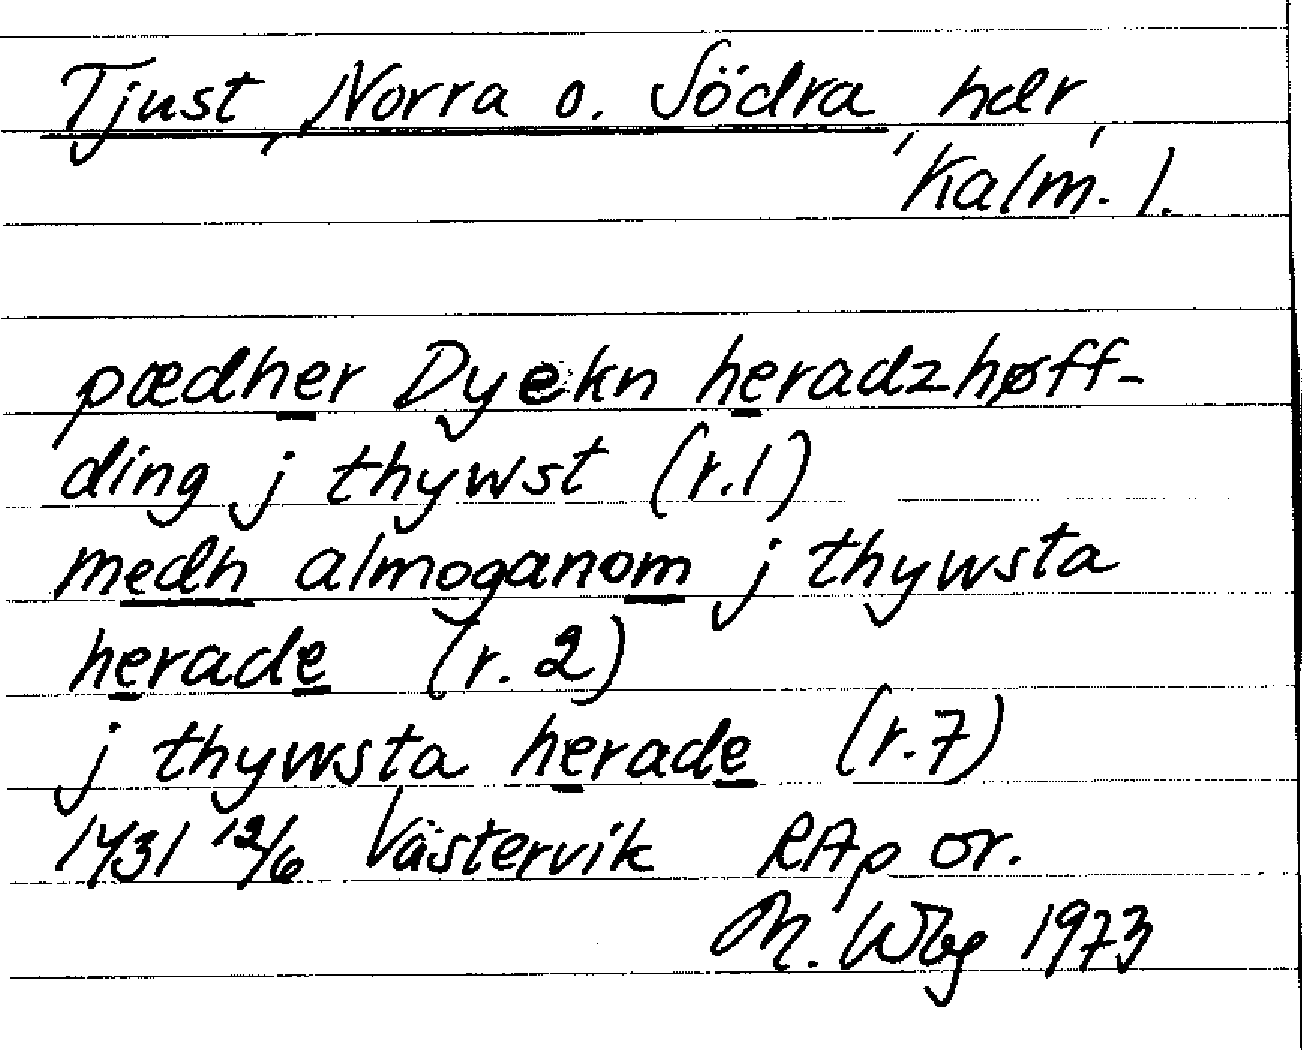 Tjust, Norra o. Södra, hdr,
Kalm. l.
pædher Dyekn heradzhøff-
ding j thywst (r.1)
medh almoganom j thywsta
herade (r. 2)
j thywsta herade (r.7)
1431 12/6 Västervik RAp or.
M. Wbg 1973